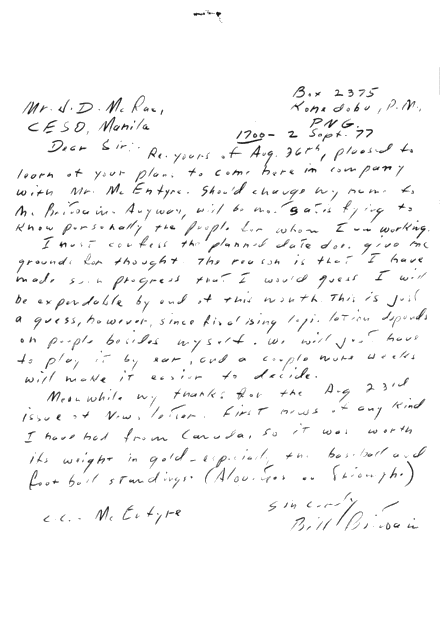 Box 2375
Mr. J. D. McRae, Konedobu, P.M.,
CESO, Manila P.N.G.
1700 - 2 Sept. 77
Dear Sir:-
Re. yours of Aug. 26th, pleased to
learn of your plans to come here in company
with Mr. McEntyre. Should change my name to
Anyway, will be most satisfying to
know personally the people for whom I am working.
I must confess the planned date does give me
grounds for thought. The reason is that I have
made such progress that I would guess I will
be expendable by end of this month. This is just
a guess, however, since finalising legislation depends
on people besides myself. We will just have
to play it by ear, and a couple more weeks
will make it easier to decide.
Meanwhile my thanks for the Aug 23rd
issue of Newsletter. First news of any kind
I have had from Canada, so it was worth
its weight in gold - especially the baseball and
football standings. (Alouettes on )
Sincerely
c.c. - McEntyre Bill